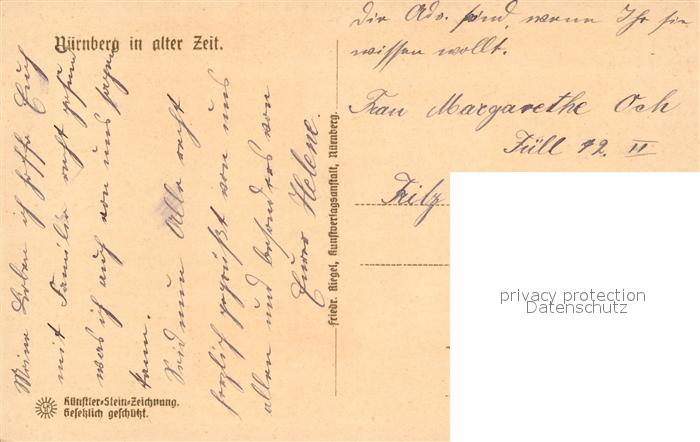 Nürnberg in alter Zeit.
Meine Lieben ich hoffe Euch
mit Familie recht gesund
was ich auch von uns sagen
kann.
Seid nun Alle recht
herzlich gegrüßt von uns
allen und besonders von
Eurer Helene.
Künstler-Stein-Zeichnung.
Gesetzlich geschützt.
Friedr. Riegel, Kunstverlagsanstalt, Nürnberg.
Die Adr. sind, wenn Ihr sie
wissen wollt.
Frau Margarethe Och
Füll 12. II
Fritz
privacy protection
Datenschutz